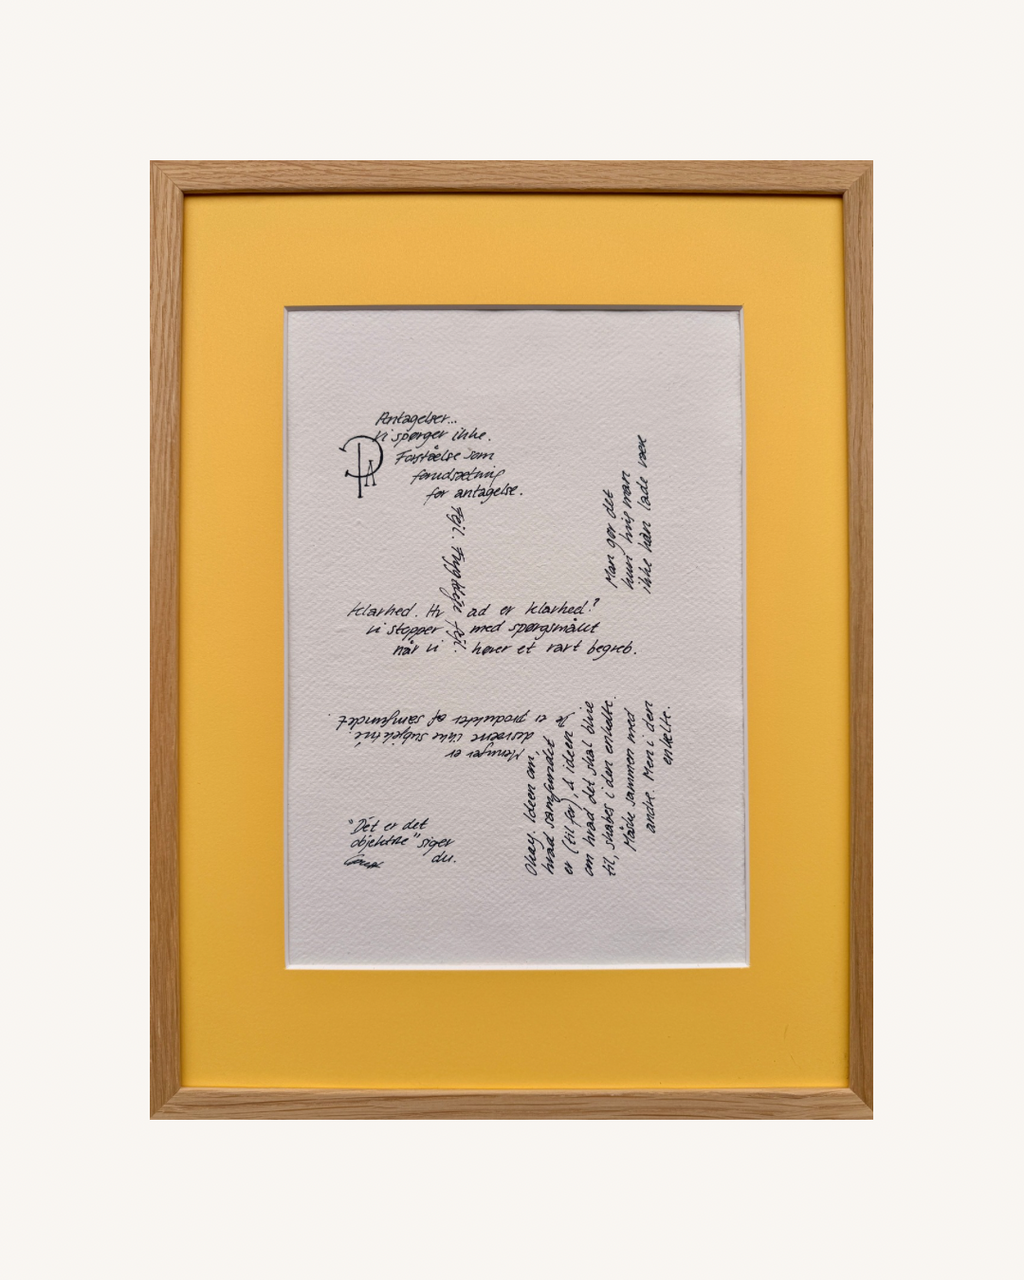 Antagelser...
Vi spørger ikke.
Forståelse som
forudsætning
for antagelse.
Fejl. Frygteligt fejl.
Man gør det
kun, hvis man
ikke kan lade være
Klarhed. Hvad er klarhed?
Vi stopper med spørgsmålet
når vi hører et rart begreb.
Meninger er
desværre ikke subjektive
De er produkter af samfundet.
Okay. Ideen om,
hvad samfundet
er (til for), & ideen
om hvad det skal blive
til, skabes i den enkelte.
Måske sammen med
andre. Men i den
enkelte.
"Det er det
objektive" siger
du.